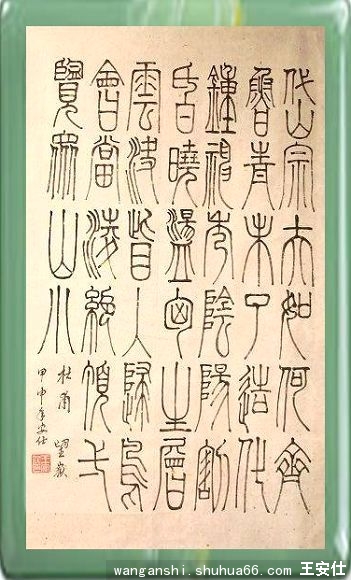 岱宗夫如何齊
魯青未了造化
鍾神秀陰陽割
昏曉盪胸生曾
雲決眥入歸鳥
會當凌絕頂一
覽眾山小
杜甫 望嶽
甲申年安仕
wanganshi.shuhua66.com 王安仕